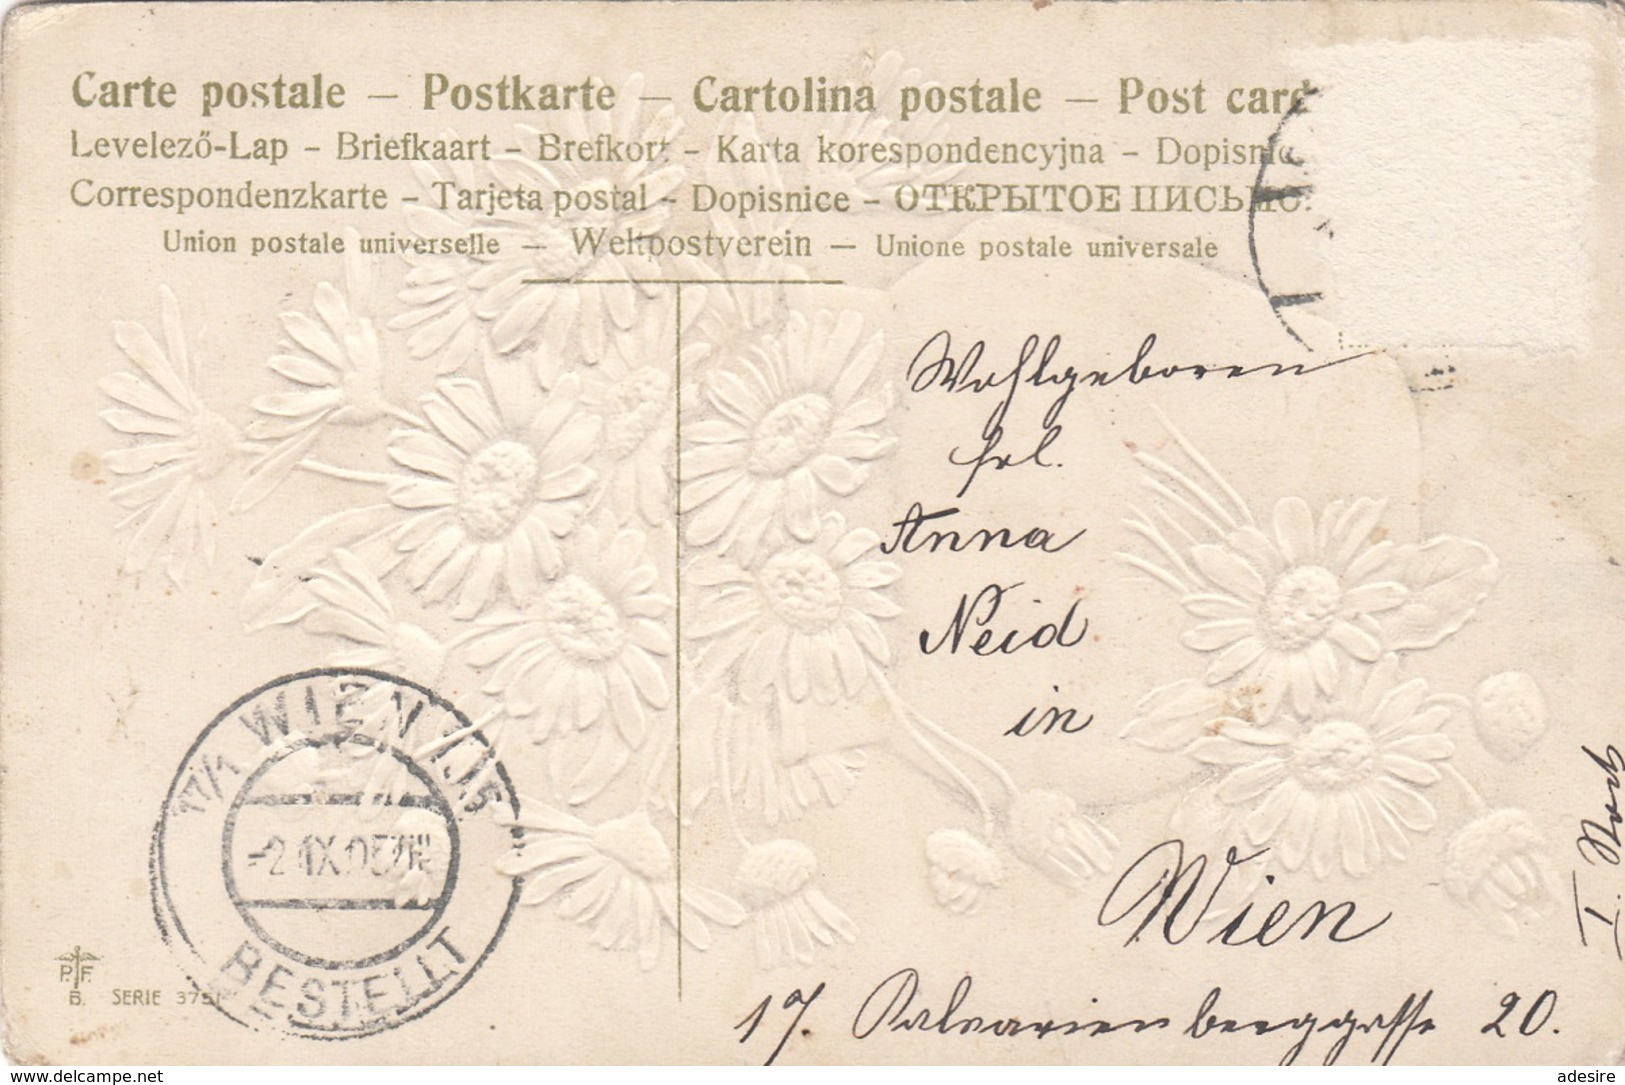 Carte postale — Postkarte — Cartolina postale — Post card
Levelező-Lap – Briefkaart – Brefkort – Karta korespondencyjna – Dopisnic
Correspondenzkarte – Tarjeta postal – Dopisnice – ОТКРЫТОЕ ПИСЬМО.
Union postale universelle — Weltpostverein — Unione postale universale
Wohlgeboren
Frl.
Anna
Neid
in
Wien
17. Kalvarienberggasse 20.
I. Stock
17/1 WIEN
BESTELLT
P.F.
B. SERIE 3751
delcampe.net
adesire